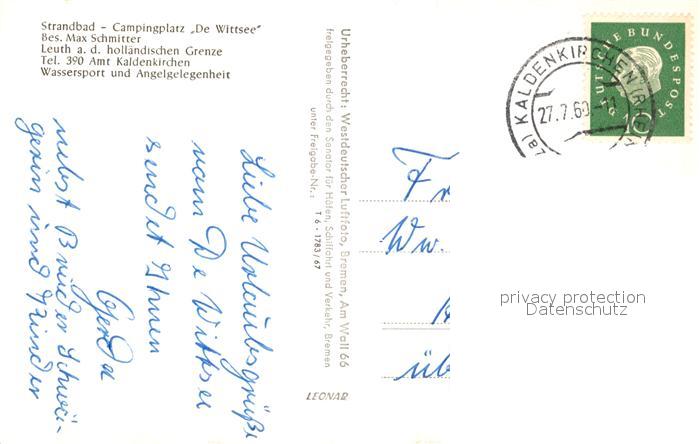 Strandbad - Campingplatz „De Wittsee"
Bes. Max Schmitter
Leuth a. d. holländischen Grenze
Tel. 390 Amt Kaldenkirchen
Wassersport und Angelgelegenheit
Liebe Urlaubsgrüße
vom De Wittsee
sendet Ihnen
Gerda
nebst Bruder Schwä-
gerin und Kinder
Urheberrecht: Westdeutscher Luftfoto, Bremen, Am Wall 66
freigegeben durch den Senator für Häfen, Schiffahrt und Verkehr, Bremen
unter Freigabe-Nr.: T 6 - 1783/67
LEONAR
DEUTSCHE BUNDESPOST
10
KALDENKIRCHEN (RHEINL)
27.7.60-11
Fr
Ww.
üb
privacy protection
Datenschutz